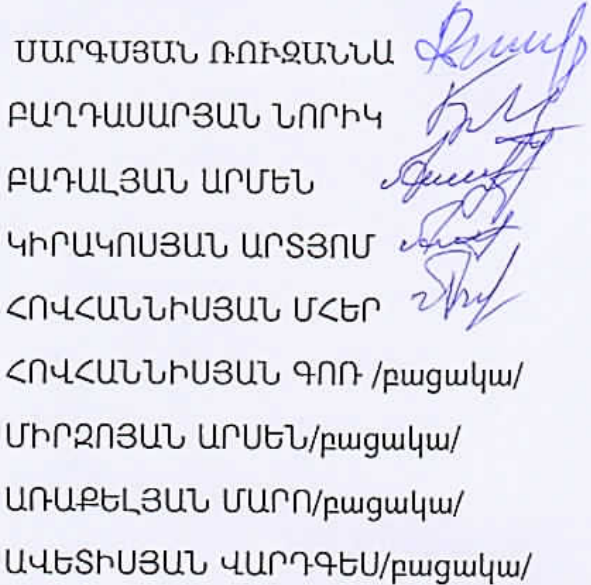 ՍԱՐԳՍՅԱՆ ՌՈՒԶԱՆՆԱ
ԲԱՂԴԱՍԱՐՅԱՆ ՆՈՐԻԿ
ԲԱԴԱԼՅԱՆ ԱՐՄԵՆ
ԿԻՐԱԿՈՍՅԱՆ ԱՐՏՅՈՄ
ՀՈՎՀԱՆՆԻՍՅԱՆ ՄՀԵՐ
ՀՈՎՀԱՆՆԻՍՅԱՆ ԳՈՌ /բացակա/
ՄԻՐԶՈՅԱՆ ԱՐՍԵՆ/բացակա/
ԱՌԱՔԵԼՅԱՆ ՄԱՐՈ/բացակա/
ԱՎԵՏԻՍՅԱՆ ՎԱՐԴԳԵՍ/բացակա/